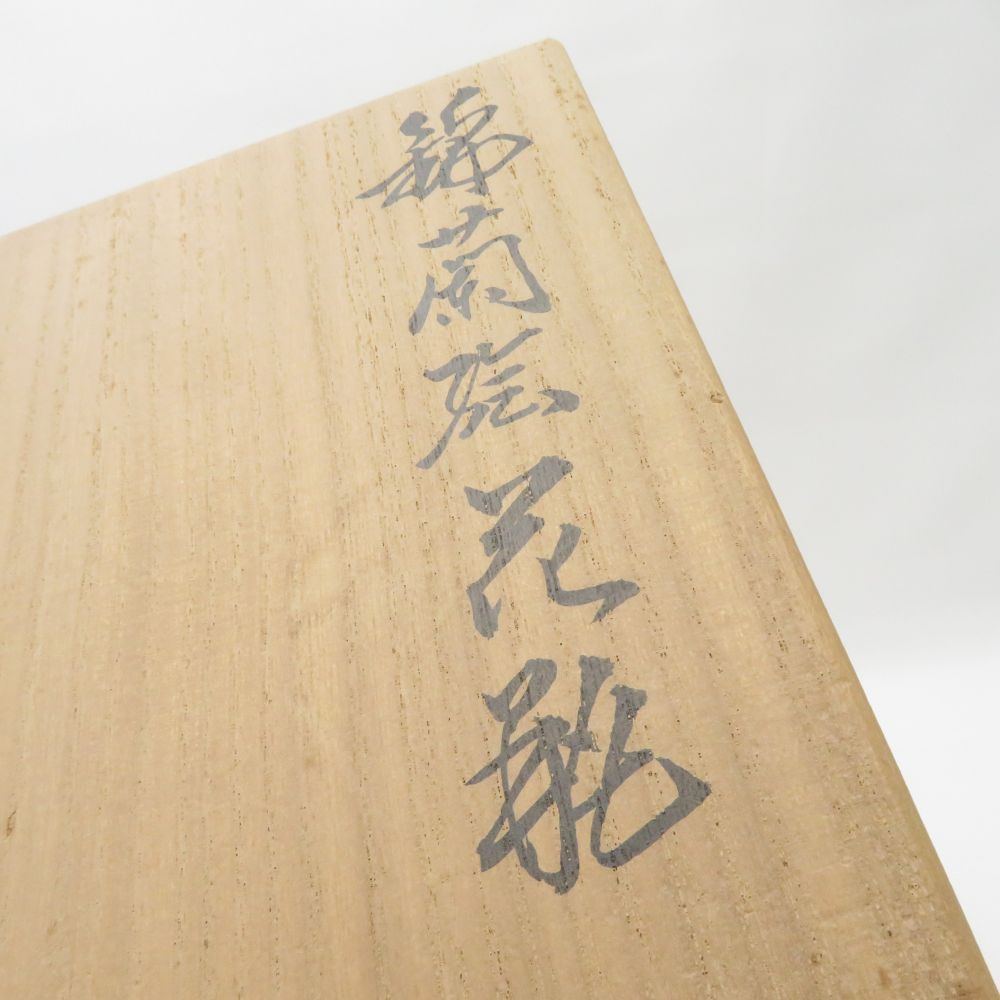 錦蘭絵花瓶